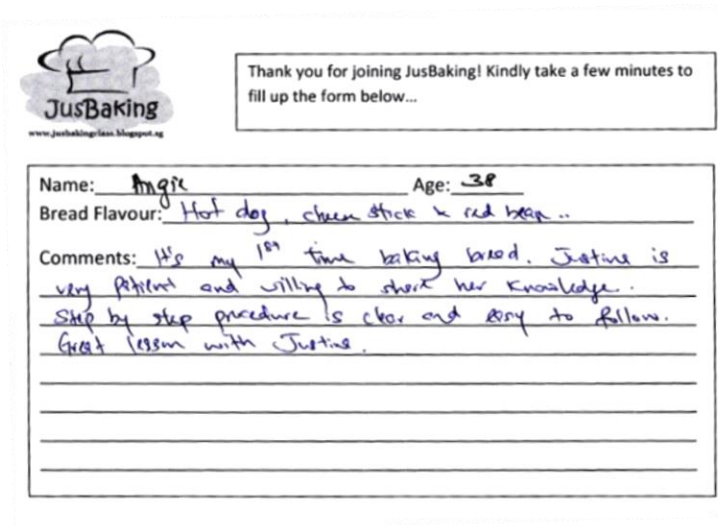 JusBaking
www.jusbakingclass.blogspot.sg
Thank you for joining JusBaking! Kindly take a few minutes to
fill up the form below...
Name: Angie Age: 38
Bread Flavour: Hot dog, cheese stick & red bean..
Comments: It's my 1st time baking bread. Justine is
very patient and willing to share her knowledge.
Step by step procedure is clear and easy to follow.
Great lesson with Justine.